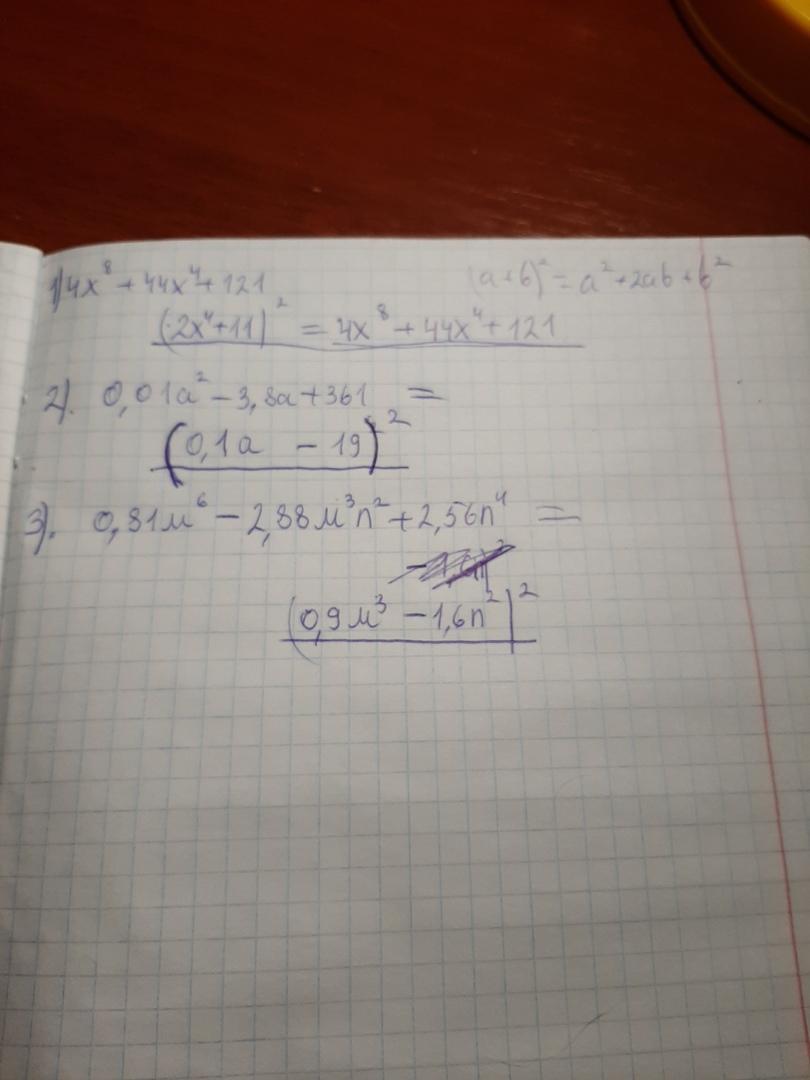 1) 4x⁸ + 44x⁴ + 121 (a+b)² = a² + 2ab + b²
(2x⁴+11)² = 4x⁸ + 44x⁴ + 121
2). 0,01a² − 3,8a + 361 =
(0,1a − 19)²
3). 0,81м⁶ − 2,88м³n² + 2,56n⁴ =
(0,9м³ − 1,6n²)²